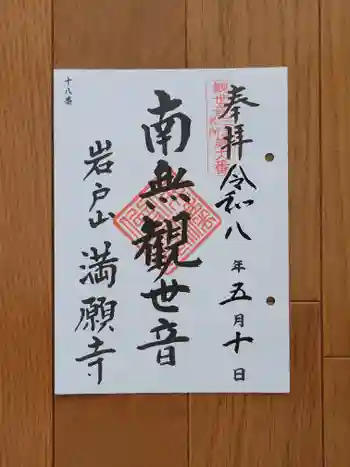 奉拝 令和八年五月十日
南無観世音
岩戸山 満願寺
十八番